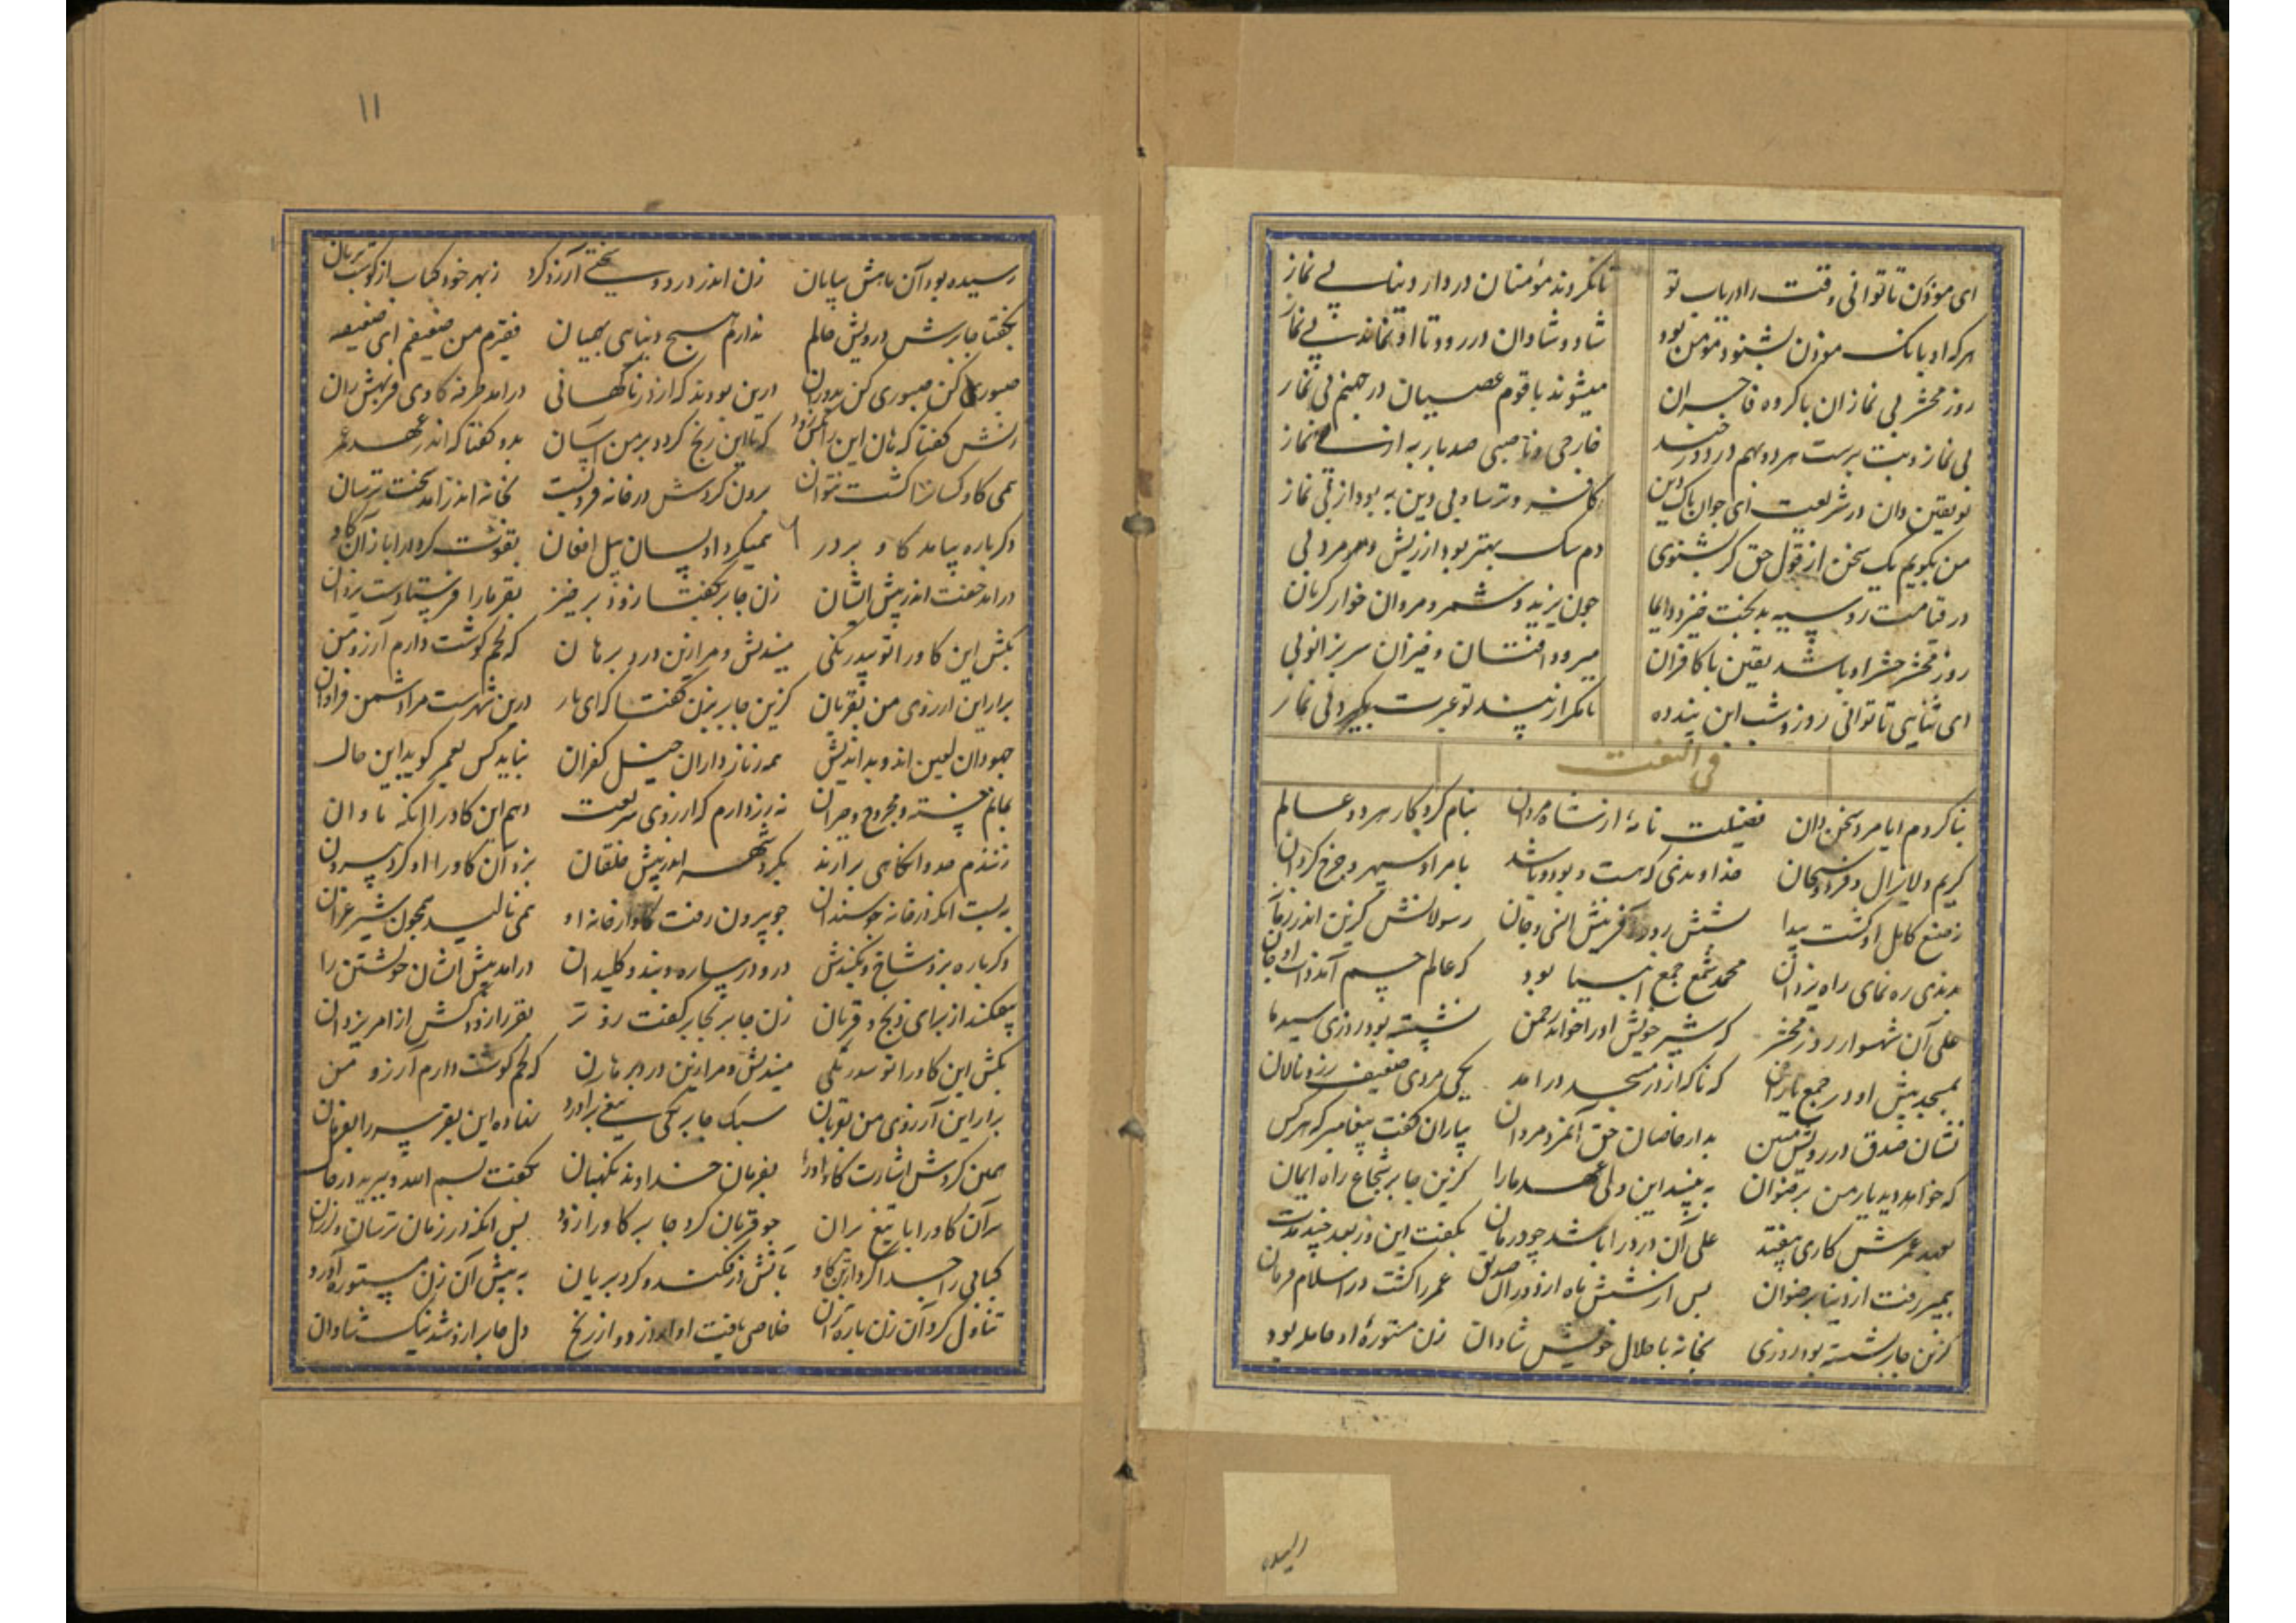 ای مؤذن تا توانی وقت را دریاب تو تا نکردند مؤمنان در دار دنیا بی نماز
هر که او بانک مؤذن بشنود مؤمن بود شاد و شادان در رود تا او نماند بی نماز
روز محشر بی نمازان با کروه فاجران میشوند با قوم عصیان در جهنم بی نماز
بی نماز و بت پرست هر دو بهم در دوزخند خارجی و ناصبی صد بار به از بی نماز
تو یقین دان در شریعت ای جوان پاک دین کافر و ترسا و بی دین به بود از بی نماز
من بکویم یک سخن از قول حق کر بشنوی دم سک بهتر بود از ریش هر مرد بی
در قیامت رو سیه بدبخت خیزد دایما چون یزید و شمر و مروان خوار کریان
روز محشر حشر او باشد یقین با کافران میرود افتان و خیزان سر بزانو بی
ای ثنایی تا توانی روز و شب این پند ده تا مکر از پند تو عبرت بگیرد بی نماز
فی النعت
بنا کردم ایا مرد سخن دان فضیلت نامهٔ از شاه مردان بنام کردکار هر دو عالم
کریم و لایزال و فرد و سبحان خداوندی که هست و بود و باشد بامر او سپهر و چرخ کردان
ز صنع کامل او کشت پیدا شش روز آفرینش انس و جان رسولانش کزین اندر
بدندی ره نمای راه یزدان محمد شمع جمع انبیا بود که عالم جسم آمد ذات او جان
علی آن شهسوار روز محشر که شیر خویش او را خواند رحمن نشسته بود روزی سید ما
بمسجد پیش او در جمع یاران که ناکه از در مسجد درامد یکی مردی ضعیف زرد و نالان
نشان صدق در رویش مبین بد از خاصان حق آنمرد مردان بیاران کفت پیغامبر که هر کس
که خواهد دید یار من برضوان به بیند این ولی عهد ما را کزین جابر شجاع راه ایمان
بعهد عمرش کاری بیفتد علی آن درد را باشد چو درمان بکفت این وز بعد چند مدت
پیمبر رفت از دنیا برضوان پس از شش ماه از دور صدیق عمر را کشت در اسلام فرمان
کزین جابر نشسته بود روزی بخانه با حلال خویش شادان زن مستورهٔ او حامله بود
رسیده
۱۱
رسیده بود آن ماهش بپایان زن اندر درد و سختی آرزو کرد ز بهر خود کباب از کوشت بریان
بکفتا جابرش درویش حالم ندارم هیچ دنیایی بهمیان فقیرم من ضعیفم ای ضعیفه
صبوری کن صبوری کن بدوران درین بودند که از در ناکهانی درامد طرفه کاوی فربهش ران
زنش کفتا که هان این را بکش زود که تا این رنج کردد بر من آسان بدو کفتا که اندر عهد عمر
نمی کاو کسان را کشت نتوان برون کردش در خانه فروبست بخانه اندر آمد سخت ترسان
دکرباره بیامد کاو بر در همیکرد او بسان پیل افغان بقوت کرد در را باز آن کاو
درامد خفت اندر پیش ایشان زن جابر بکفتا زود برخیز بقر ما را فرستادست یزدان
بکش این کاو را تو بیدرنکی میندیش و مرا زین درد برهان که لحم کوشت دارم آرزو من
برار این ارزوی من بقربان کزین جابر بزن کفتا که ای یار درین شهرست مرا دشمن فراوان
جهودان لعین اند و بداندیش همه زنارداران خیل کفران نباید کس بعمر کوید این حال
بمانم خسته و مجروح و حیران نه زر دارم که از روی شریعت دهم این کاو را انکه تاوان
زنندم صد و انکاهی برارند بکرد شهر اندر پیش خلقان بزد آن کاو را او کرد بیرون
ببست انکه در خانه چو سندان چو بیرون رفت کاو از خانه او همی نالید همچون شیر غران
دکرباره بزد شاخ و بکندش در و دیوار و بند و کلیدان درامد پیش ایشان خویشتن را
بیفکند از برای ذبح و قربان زن جابر بجابر کفت زوتر بقر را زود کش از امر یزدان
بکش این کاو را تو بیدرنکی میندیش و مرا زین درد برهان که لحم کوشت دارم آرزو من
برار این آرزوی من بقربان سبک جابر یکی تیغی براورد نهاده این بقر سر را بفرمان
همین کردش اشارت کاو او را بفرمان خداوند نکهبان بکفت بسم الله و ببرید در حال
سر آن کاو را با تیغ بران چو قربان کرد جابر کاو را زود پس انکه در زمان ترسان و لرزان
کبابی را جدا کرد از تن کاو باتش در فکند و کرد بریان به پیش آن زن مستوره آورد
تناول کرد آن زن پاره زان خلاصی یافت او از درد و از رنج دل جابر ازو شد نیک شادان